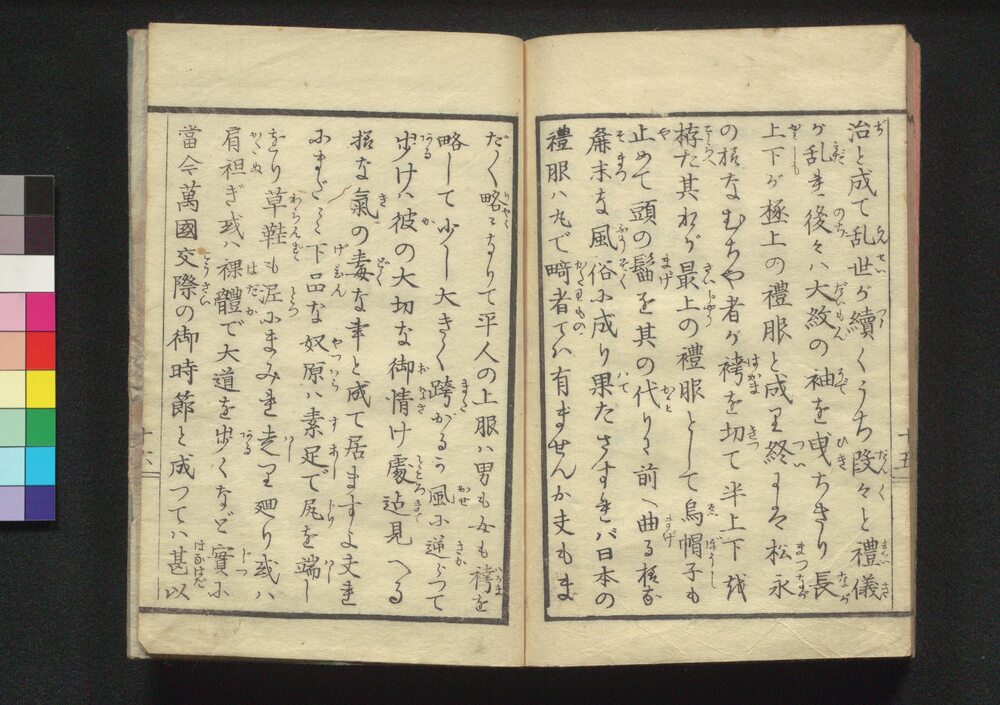 治と成て乱世が續くうち段々と禮儀
が乱れ後々ハ大紋の袖を曳ちぎり長
上下が極上の禮服と成り終には松永
の様なむちや者が袴を切て半上下を
拵た其れが最上の禮服として烏帽子も
止めて頭の髷を其の代りに前へ曲る様な
麁末な風俗に成り果たさすれバ日本の
禮服ハ丸で畸者でハ有ませんか夫もま
だ〱略になりて平人の上服ハ男も女も袴を
略して少し大きく跨がるか風に逆らつて
歩けハ彼の大切な御情け處迠見へる
様な氣の毒な事と成て居ますよ夫れ
にまだ〱下品な奴原ハ素足で尻を端し
をり草鞋も泥にまみれ走り廻り或ハ
肩袒ぎ或ハ裸體で大道を歩くなど實に
當今萬國交際の御時節と成つてハ甚以
十五
十六